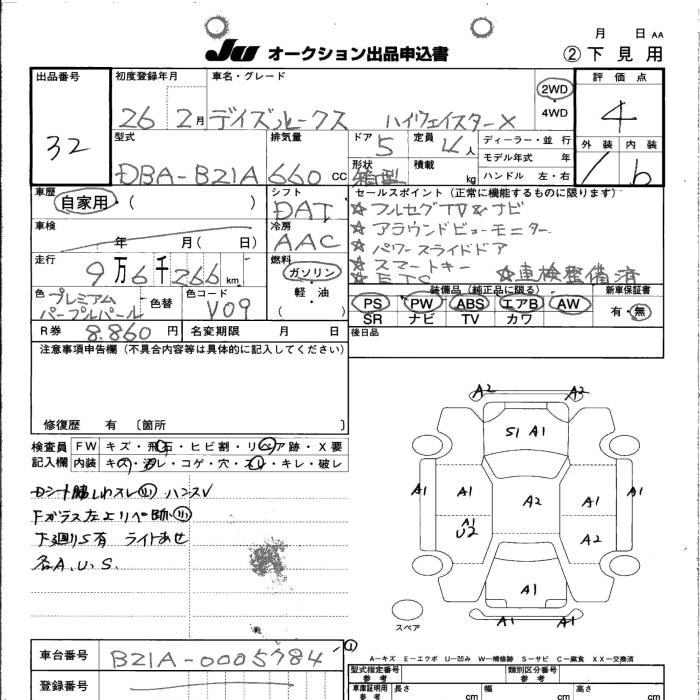 月 日 AA
JU オークション出品申込書
② 下見用
出品番号
32
初度登録年月
26 2月
車名・グレード
デイズルークス ハイウェイスターX
2WD
4WD
評価点
4
外装 内装
1 b
型式
DBA-BZ1A
排気量
660 cc
ドア
5
定員
4人
形状
箱型
積載
kg
ディーラー・並行
モデル年式 年
ハンドル 左・右
車歴
自家用・( )
シフト
DAT
セールスポイント (正常に機能するものに限ります)
☆フルセグTV&ナビ
☆アラウンドビューモニター
☆パワースライドドア
☆スマートキー
☆ETC ☆車検整備済
車検
年 月( 日)
冷房
AAC
走行
9万6千266km
燃料
ガソリン
軽・油
( )
色
プレミアム
パープルパール
色替
色コード
V09
装備品 (純正品に限る)
PS PW ABS エアB AW
SR ナビ TV カワ
新車保証書
有・無
R券 8.860円
名変期限 月 日
後日品
注意事項申告欄 (不具合内容等は具体的に記入してください)
修復歴 有 〔箇所 〕
検査員
記入欄
FW キズ・飛石・ヒビ割・リペア跡・X要
内装 キズ・汚レ・コゲ・穴・スレ・キレ・破レ
Dシート
ハンスレ
Fガラス左上リペ跡
下廻りS有 ライトあせ
各A.U.S.
A2 A2
S1 A1
A1 A1 A2 A1 A1
A1
U2
A2
A1
A1
スペア
車台番号
BZ1A-0005784
登録番号
A-キズ E-エクボ U-凹み W-補修跡 S-サビ C-腐食 XX-交換済
型式指定番号
参考
類別区分番号
参考
車庫証明用
参考
長さ cm
幅 cm
高さ cm